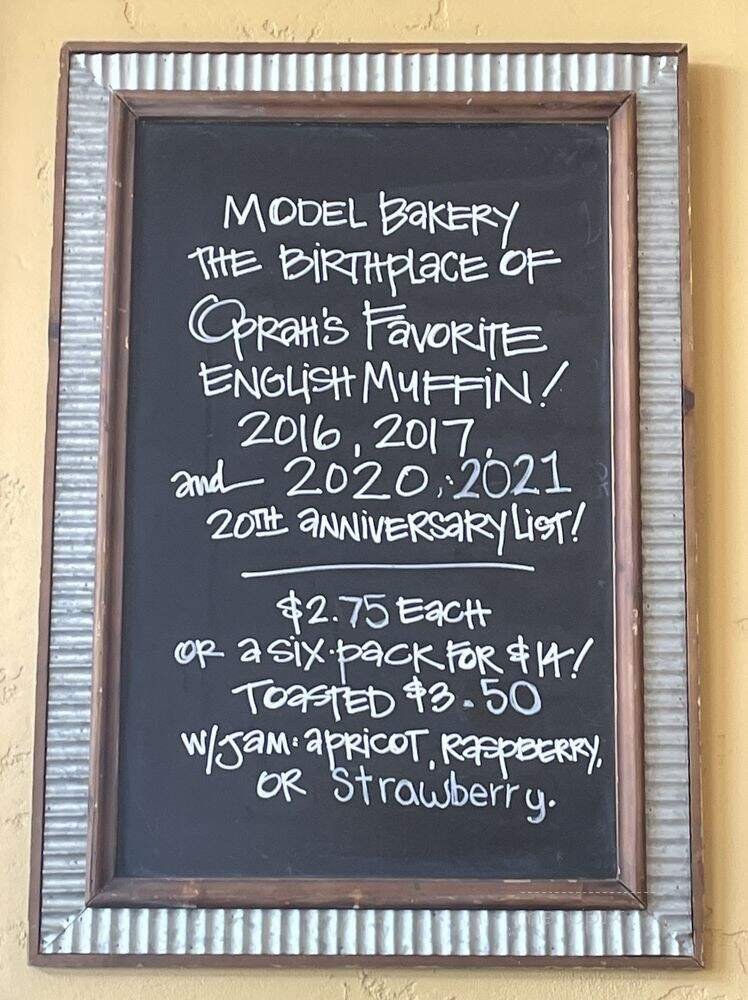 MODEL BAKERY
THE BIRTHPLACE OF
OPRAH'S FAVORITE
ENGLISH MUFFIN!
2016, 2017,
and 2020, 2021
20TH ANNIVERSARY LIST!
$2.75 EACH
OR a SIX-PACK FOR $14!
TOASTED $3.50
W/JAM: APRICOT, RASPBERRY,
OR Strawberry.